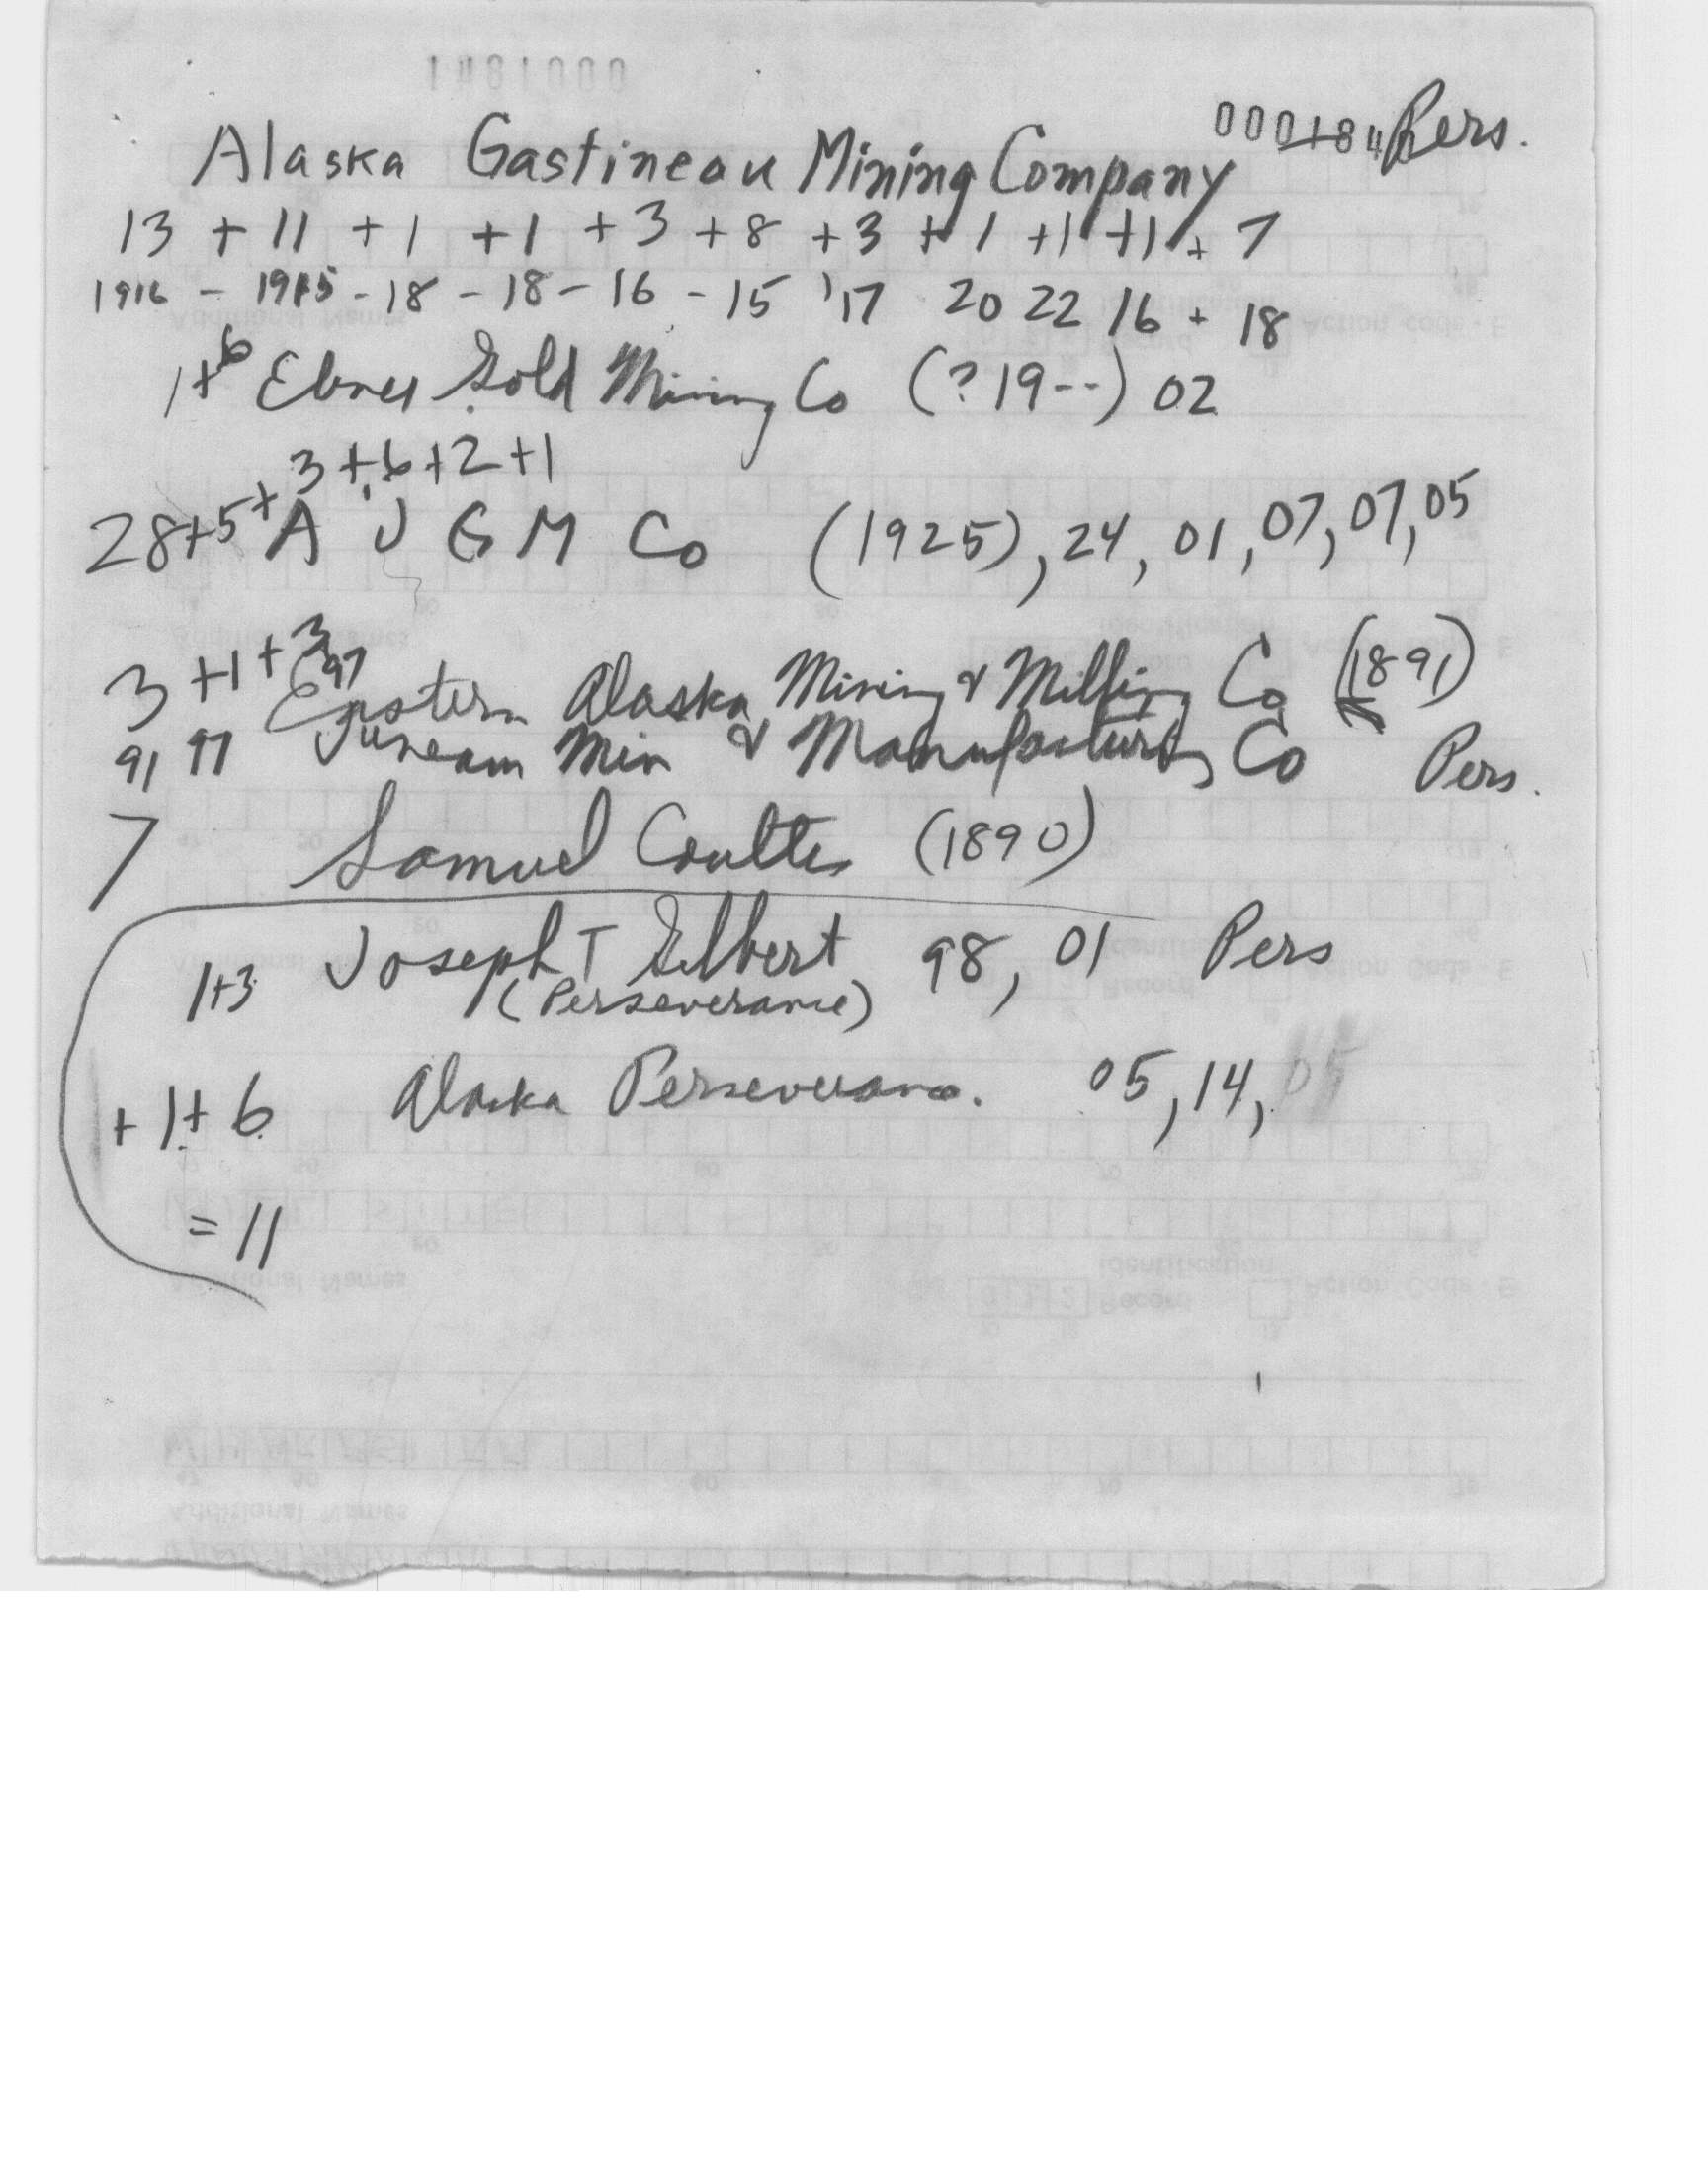 000184 Pers.
Alaska Gastineau Mining Company
13 + 11 + 1 + 1 + 3 + 8 + 3 + 1 + 1 + 1 + 7
1916 - 1915 - 18 - 18 - 16 - 15 '17 20 22 16 + 18
1+6 Ebner Gold Mining Co (? 19--) 02
3+6+2+1
28+5+ A J G M Co (1925), 24, 01, 07, 07, 05
3 + 1 + 3
97
Eastern Alaska Mining & Milling Co (1891)
91 97 Juneau Min & Manufacturing Co Pers.
7 Samuel Coulter (1890)
1+3 Joseph T Gilbert 98, 01 Pers
(Perseverance)
+ 1 + 6 Alaska Perseverance. 05, 14, 05
= 11